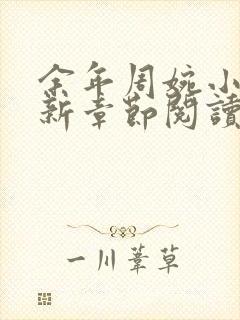 余年周婉小
新章節閱讀
一川葦草